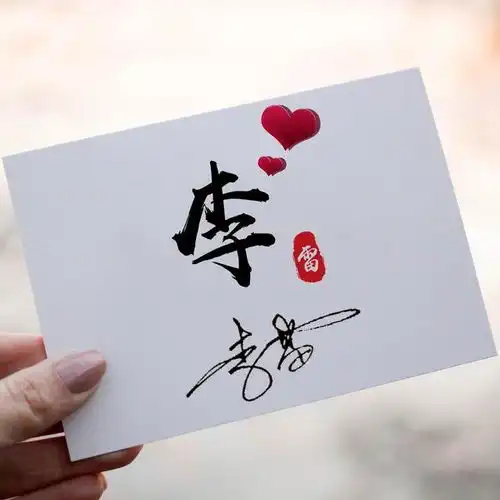 李
雷
李雷